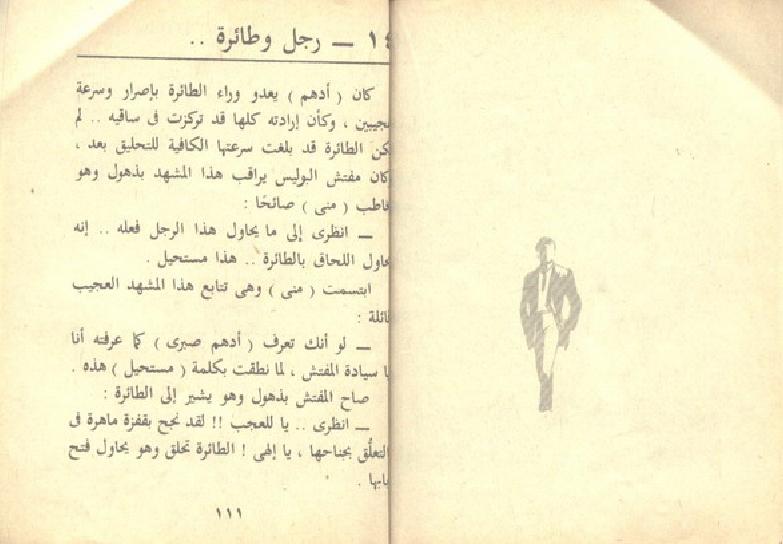 ١٤ ــ رجل وطائرة ..
كان ( أدهم ) يعدو وراء الطائرة بإصرار وسرعة
عجيبين ، وكأن إرادته كلها قد تركزت فى ساقيه .. لم
تكن الطائرة قد بلغت سرعتها الكافية للتحليق بعد ،
كان مفتش البوليس يراقب هذا المشهد بذهول وهو
يخاطب ( منى ) صائحًا :
ــ انظرى إلى ما يحاول هذا الرجل فعله .. إنه
يحاول اللحاق بالطائرة .. هذا مستحيل .
ابتسمت ( منى ) وهى تتابع هذا المشهد العجيب
قائلة :
ــ لو أنك تعرف ( أدهم صبرى ) كما عرفته أنا
يا سيادة المفتش ، لما نطقت بكلمة ( مستحيل ) هذه .
صاح المفتش بذهول وهو يشير إلى الطائرة :
ــ انظرى .. يا للعجب !! لقد نجح بقفزة ماهرة فى
التعلُّق بجناحها ، يا إلهى ! الطائرة تحلق وهو يحاول فتح
بابها .
١١١